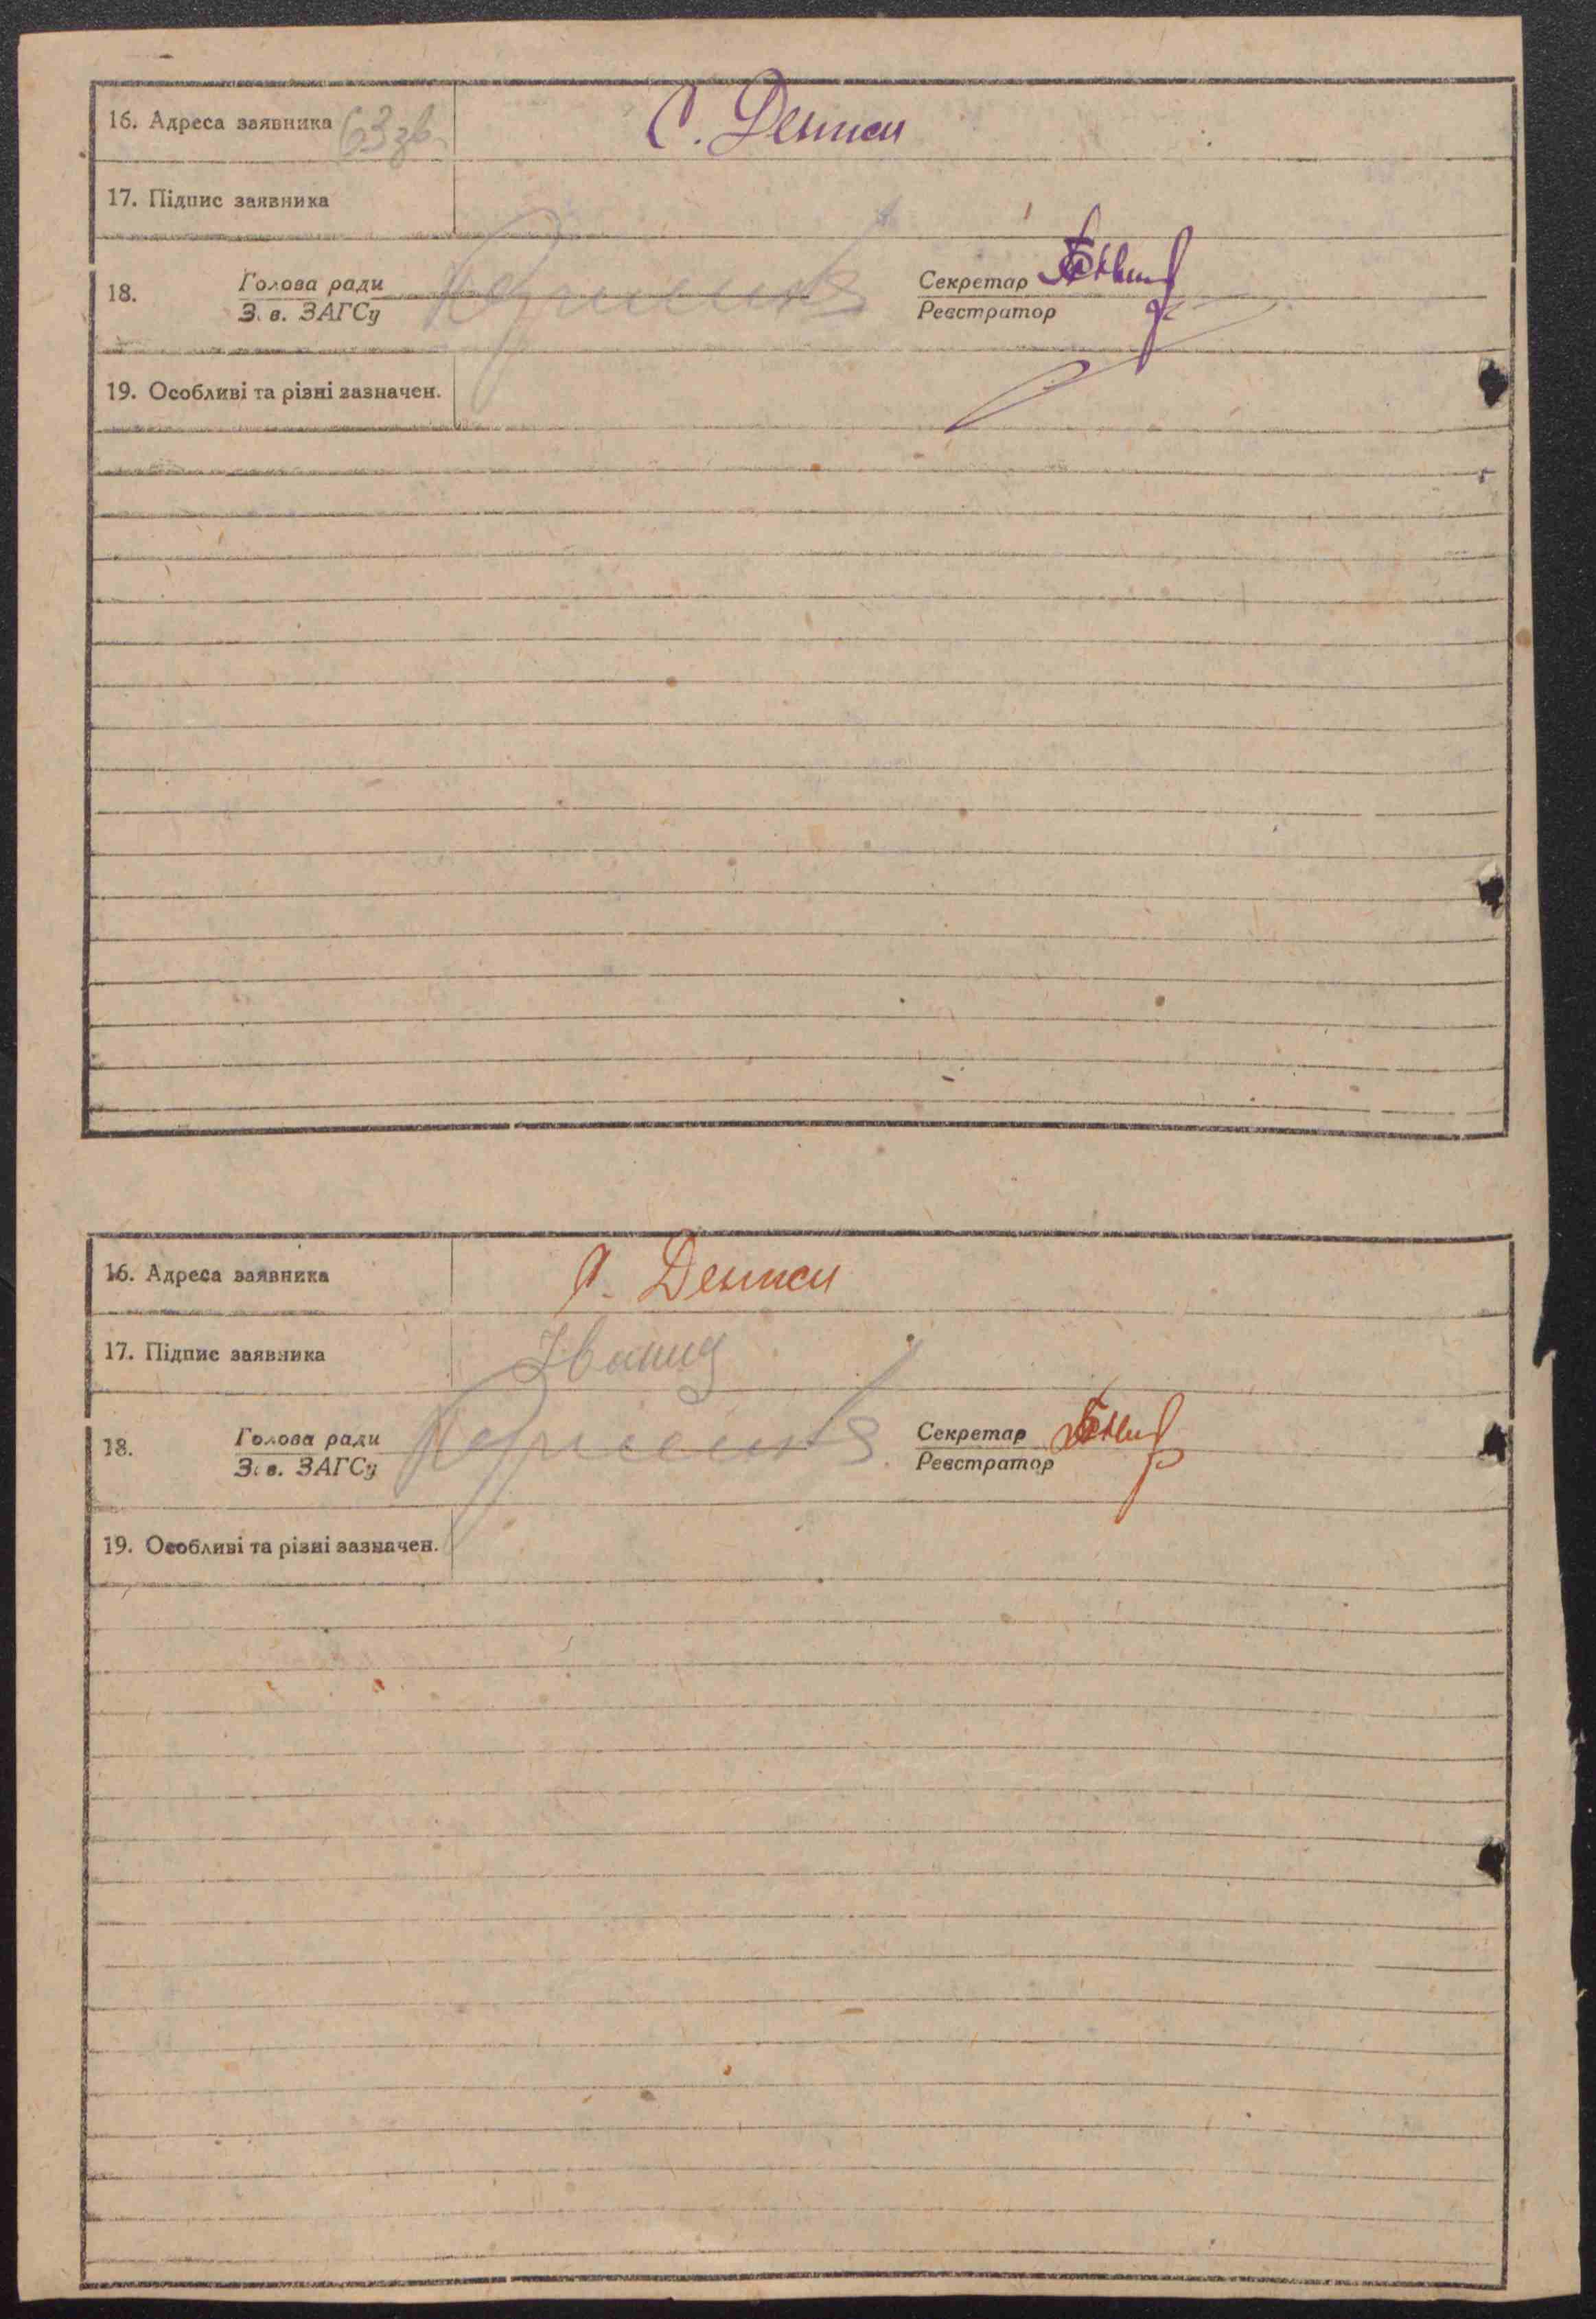 16. Адреса заявника 63 зв. С. Дениси
17. Підпис заявника
18. Голова ради Секретар
З. в. ЗАГСу Реєстратор
19. Особливі та різні зазначен.
16. Адреса заявника С. Дениси
17. Підпис заявника
18. Голова ради Секретар
З. в. ЗАГСу Реєстратор
19. Особливі та різні зазначен.